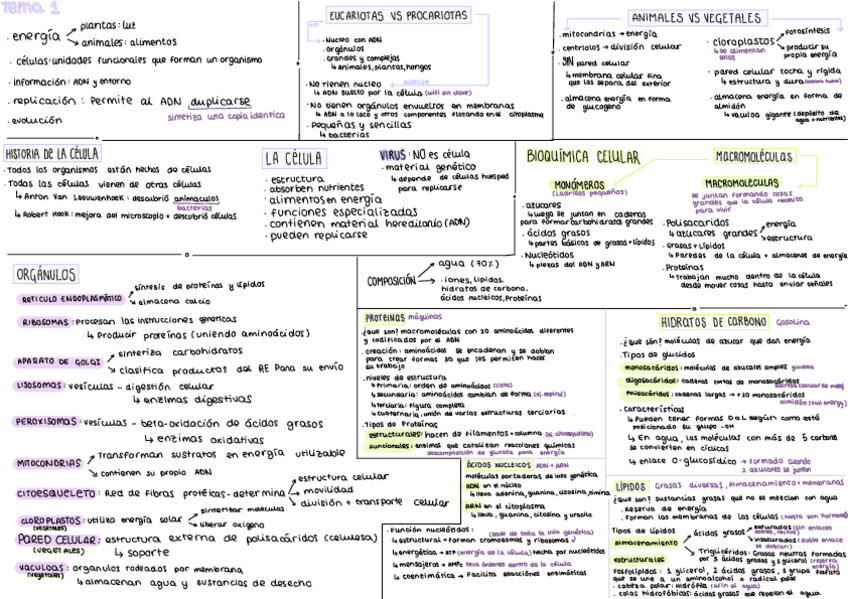 Tema 1
· energía
plantas: luz
animales: alimentos
· células: unidades funcionales que forman un organismo
· información: ADN y entorno
· replicación: Permite al ADN duplicarse
sintetiza una copia idéntica
· evolución
EUCARIOTAS VS PROCARIOTAS
· Nucleo con ADN
· orgánulos
· grandes y complejas
↳ animales, plantas, hongos
· No tienen nucleo
↳ ADN suelto por la célula (wifi sin clave)
· No tienen orgánulos envueltos en membranas
↳ ADN a lo loco y otros componentes flotando en el citoplasma
· Pequeñas y sencillas
↳ bacterias
ANIMALES VS VEGETALES
· mitocondrias → energía
· centriolos → división celular
· SIN pared celular
↳ membrana celular fina
que las separa del exterior
· almacena energía en forma
de glucogeno
· cloroplastos
fotosíntesis
producir su
propia energía
↳ se alimentan
solas
· pared celular tocha y rígida
↳ estructura y dura
· almacena energía en forma de
almidón
↳ vacuola gigante (depósito de
agua + nutrientes)
HISTORIA DE LA CÉLULA
· Todos los organismos están hechos de células
· Todas las células vienen de otras células
↳ Anton Van Leeuwenhoek: descubrió animaculos
bacterias
↳ Robert Hook: mejora del microscopio + descubrió células
LA CÉLULA
· estructura
· absorben nutrientes
· alimentos en energía
· funciones especializadas
· contienen material hereditario (ADN)
· pueden replicarse
VIRUS: NO es célula
· material genético
↳ depende de células huesped
para replicarse
BIOQUÍMICA CELULAR
MONÓMEROS
(Ladrillos pequeños)
· azucares
↳ luego se juntan en cadenas
para formar carbohidratos grandes
· ácidos grasos
↳ partes básicas de grasas + lípidos
· Nucleótidos
↳ piezas del ADN y ARN
MACROMOLÉCULAS
MACROMOLECULAS
se juntan formando cosas
grandes que la célula necesita
para vivir
· Polisacaridos
↳ azúcares grandes
energía
estructura
· Grasas + Lípidos
↳ Paredes de la célula + almacenes de energía
· Proteínas
↳ trabajan mucho dentro de la célula
desde mover cosas hasta enviar señales
ORGÁNULOS
RETICULO ENDOPLASMÁTICO
síntesis de proteínas y lípidos
almacena calcio
RIBOSOMAS: Procesan las instrucciones genéticas
↳ Producir proteínas (uniendo aminoácidos)
APARATO DE GOLGI
sintetiza carbohidratos
clasifica productos del RE Para su envío
LISOSOMAS: vesículas - digestión celular
↳ enzimas digestivas
PEROXISOMAS: vesículas - beta-oxidación de ácidos grasos
↳ enzimas oxidativas
MITOCONDRIAS
Transforman sustratos en energía utilizable
contienen su propio ADN
CITOESQUELETO: Red de fibras protéicas - determina
estructura celular
movilidad
división + transporte celular
CLOROPLASTOS: utiliza energía solar
(vegetales)
sintetizar moléculas
liberar oxígeno
PARED CELULAR: estructura externa de polisacáridos (celulosa)
(VEGETALES)
↳ soporte
VACUOLAS: organulos rodeados por membrana
(vegetales)
↳ almacenan agua y sustancias de desecho
COMPOSICIÓN
agua (70%)
· iones, Lípidos,
hidratos de carbono,
ácidos nucleicos, Proteínas
PROTEINAS máquinas
· ¿que son? macromoléculas con 20 aminoácidos diferentes
y codificados por el ADN
· creación: aminoácidos se encadenan y se doblan
para crear formas 3D que les permiten hacer
su trabajo
· niveles de estructura
↳ Primaria: orden de aminoácidos (lista)
↳ secundaria: aminoácidos cambian de forma (ej. espiral)
↳ terciaria: figura completa
↳ cuaternaria: unión de varias estructuras terciarias
· Tipos de Proteínas
estructurales: hacen de filamentos + alumina (ej. citoesqueleto)
funcionales: enzimas que catalizan reacciones químicas
descomposición de glucosa para energía
ÁCIDOS NUCLEICOS ADN + ARN
moléculas portadoras de info genética
ADN en el núcleo
↳ lleva adenina, guanina, citosina, timina
ARN en el citoplasma
↳ lleva, guanina, citosina y uracilo
· Función nucleótidos:
(base de toda la info genética)
↳ estructural → forman cromosomas y ribosomas
↳ energético → ATP (energía de la célula) hecha por nucleótidos
↳ mensajeros → AMPc lleva órdenes dentro de la célula
↳ coenzimática → Facilita reacciones enzimáticas
HIDRATOS DE CARBONO Gasolina
· ¿que son? moléculas de azucar que dan energía
· Tipos de glúcidos
monosacáridos: moléculas de azucares simples glucosa
oligosacáridos: cadenas cortas de monosacáridos
Polisacáridos: cadenas largas → +20 monosacáridos
· características
↳ Pueden tener formas D o L según como está
posicionado su grupo -OH
↳ En agua, las moléculas con más de 5 carbonos
se convierten en cíclicas
↳ enlace O-glucosídico → formado cuando
2 azucares se juntan
LÍPIDOS Grasas diversas, Almacenamiento + membranas
¿que son? sustancias grasas que no se mezclan con agua
· Reserva de energía
· Forman las membranas de las células
Tipos de lípidos
almacenamiento
ácidos grasos
saturados (sin enlaces
insaturados (doble enlace
se doblan)
Triglicéridos: Grasas neutras formadas
por 3 ácidos grasos y 1 glicerol (reserva
energía)
estructurales
fosfolípidos: 1 glicerol, 2 ácidos grasos, 1 grupo fosfato
que se une a un aminoalcohol o radical polar
· cabeza polar: hidrófila (afín al agua)
· colas hidrofóbicas: ácidos grasos que repelen el agua